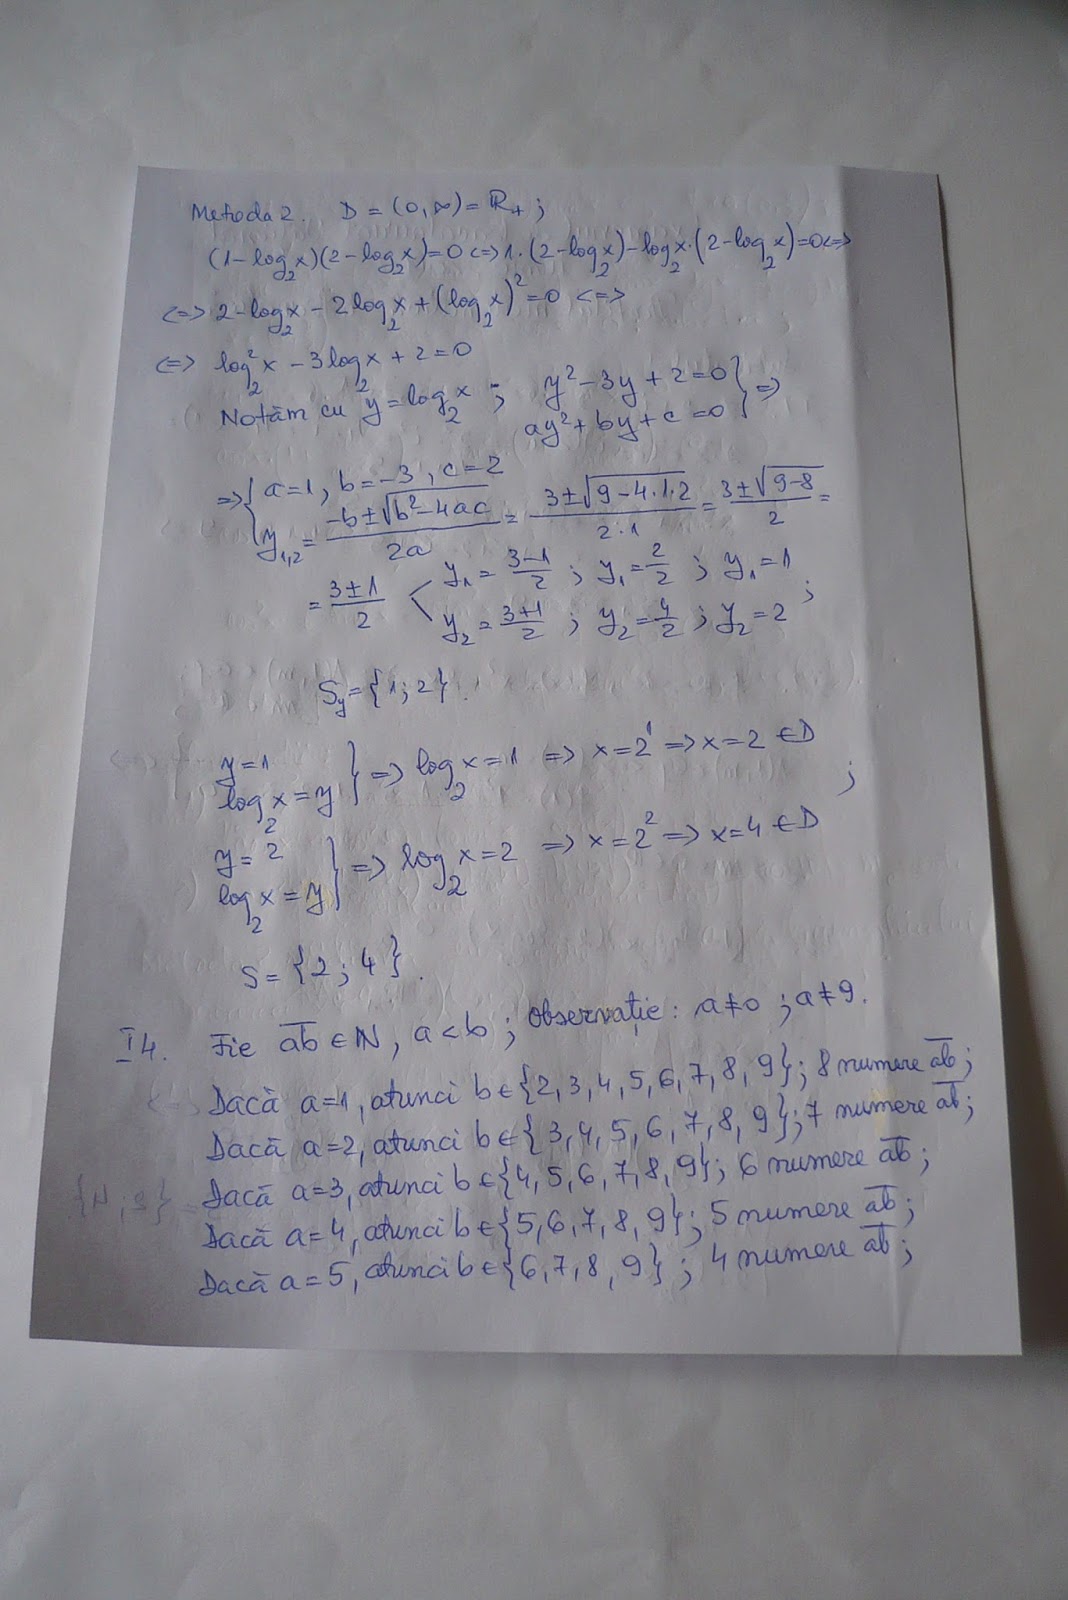 Metoda 2. D = (0, ∞) = ℝ₊ ;
(1-log₂x)(2-log₂x)=0 <=> 1·(2-log₂x)-log₂x·(2-log₂x)=0 <=>
<=> 2-log₂x - 2log₂x + (log₂x)²=0 <=>
<=> log₂²x - 3log₂x + 2=0
Notăm cu y=log₂x ; y²-3y+2=0 } =>
ay²+by+c=0
=> { a=1, b=-3, c=2
y₁,₂ = (-b±√(b²-4ac))/(2a) = (3±√(9-4·1·2))/(2·1) = (3±√(9-8))/2 =
= (3±1)/2 < y₁ = (3-1)/2 ; y₁ = 2/2 ; y₁ = 1
y₂ = (3+1)/2 ; y₂ = 4/2 ; y₂ = 2 ;
S_y = {1; 2}.
y=1
log₂x = y } => log₂x = 1 => x = 2¹ => x = 2 ∈ D ;
y = 2
log₂x = y } => log₂x = 2 => x = 2² => x = 4 ∈ D
S = {2; 4}.
I 4. Fie ab̅ ∈ ℕ, a < b ; observație: a ≠ 0 ; a ≠ 9.
Dacă a=1, atunci b ∈ {2, 3, 4, 5, 6, 7, 8, 9}; 8 numere ab̅ ;
Dacă a=2, atunci b ∈ {3, 4, 5, 6, 7, 8, 9}; 7 numere ab̅ ;
Dacă a=3, atunci b ∈ {4, 5, 6, 7, 8, 9}; 6 numere ab̅ ;
Dacă a=4, atunci b ∈ {5, 6, 7, 8, 9}; 5 numere ab̅ ;
Dacă a=5, atunci b ∈ {6, 7, 8, 9} ; 4 numere ab̅ ;